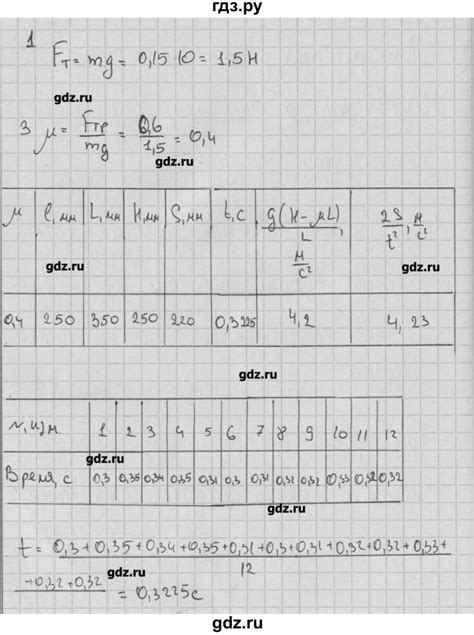 гдз.ру
1
Fт = mg = 0,15·10 = 1,5 Н
gdz.ru
3 μ = Fтр/mg = 0,6/1,5 = 0,4
gdz.ru
μ | l, мм | L, мм | H, мм | S, мм | t, c | g(H - μL)/L, м/с² | 2S/t², м/с²
gdz.ru
gdz.ru
0,4 | 250 | 350 | 250 | 220 | 0,3225 | 4,2 | 4,23
gdz.ru
N, изм | 1 | 2 | 3 | 4 | 5 | 6 | 7 | 8 | 9 | 10 | 11 | 12
gdz.ru
Время, с | 0,3 | 0,35 | 0,34 | 0,35 | 0,31 | 0,3 | 0,31 | 0,32 | 0,32 | 0,33 | 0,32 | 0,32
gdz.ru
t = 0,3+0,35+0,34+0,35+0,31+0,3+0,31+0,32+0,32+0,33+
12
gdz.ru
+0,32+0,32 = 0,3225 с
gdz.ru